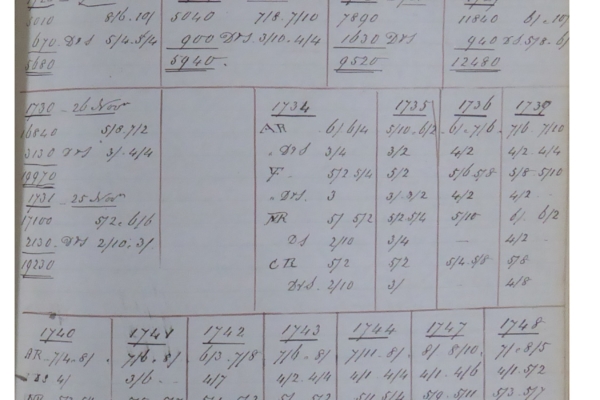 5010 8/6. 10/
670. DrS 5/4. 5/4
5680
5040 7/8. 7/10
900 DrS 3/10. 4/4
5940.
7890
1630 DrS
9520
11840 6/. 10/
940 DS 5/8. 6/
12480
1730 - 26 Novr
16840 5/8. 7/2
3130 DrS 3/. 4/4
19970
1731 - 25 Novr
17100 5/2. 6/6
2130. DrS 2/10. 3/.
19230
1734 1735 1736 1739
AR 6/. 6/4 5/10. 6/2 6/. 7/6. 7/6. 7/10
. DrS 3/4 3/2 4/2 4/2. 4/4
Y. 5/2 5/4 5/2 5/6 5/8 5/8. 5/10
. DrS. 3 3/. 3/2 4/2 4/2. -
NR 5/. 5/2 5/2 5/4 5/10 6/. 6/2
DS 2/10 3/4 - 4/2 -
CR 5/2 5/2 5/4. 5/8 5/8
DrS. 2/10 3/ 4/8
1740 1741 1742 1743 1744 1747 1748
AR - 7/4. 8/. 7/6. 8/. 6/3. 7/8 7/6 - 8/. 7/11. 8/. 8/. 8/10. 7/. 8/5
. DS 4/ 3/6 - . 4/7 4/2. 4/4 4/. 4/4 4/. 4/6 4/. 5/2
NR 5/9. 5/11 5/3. 5/7